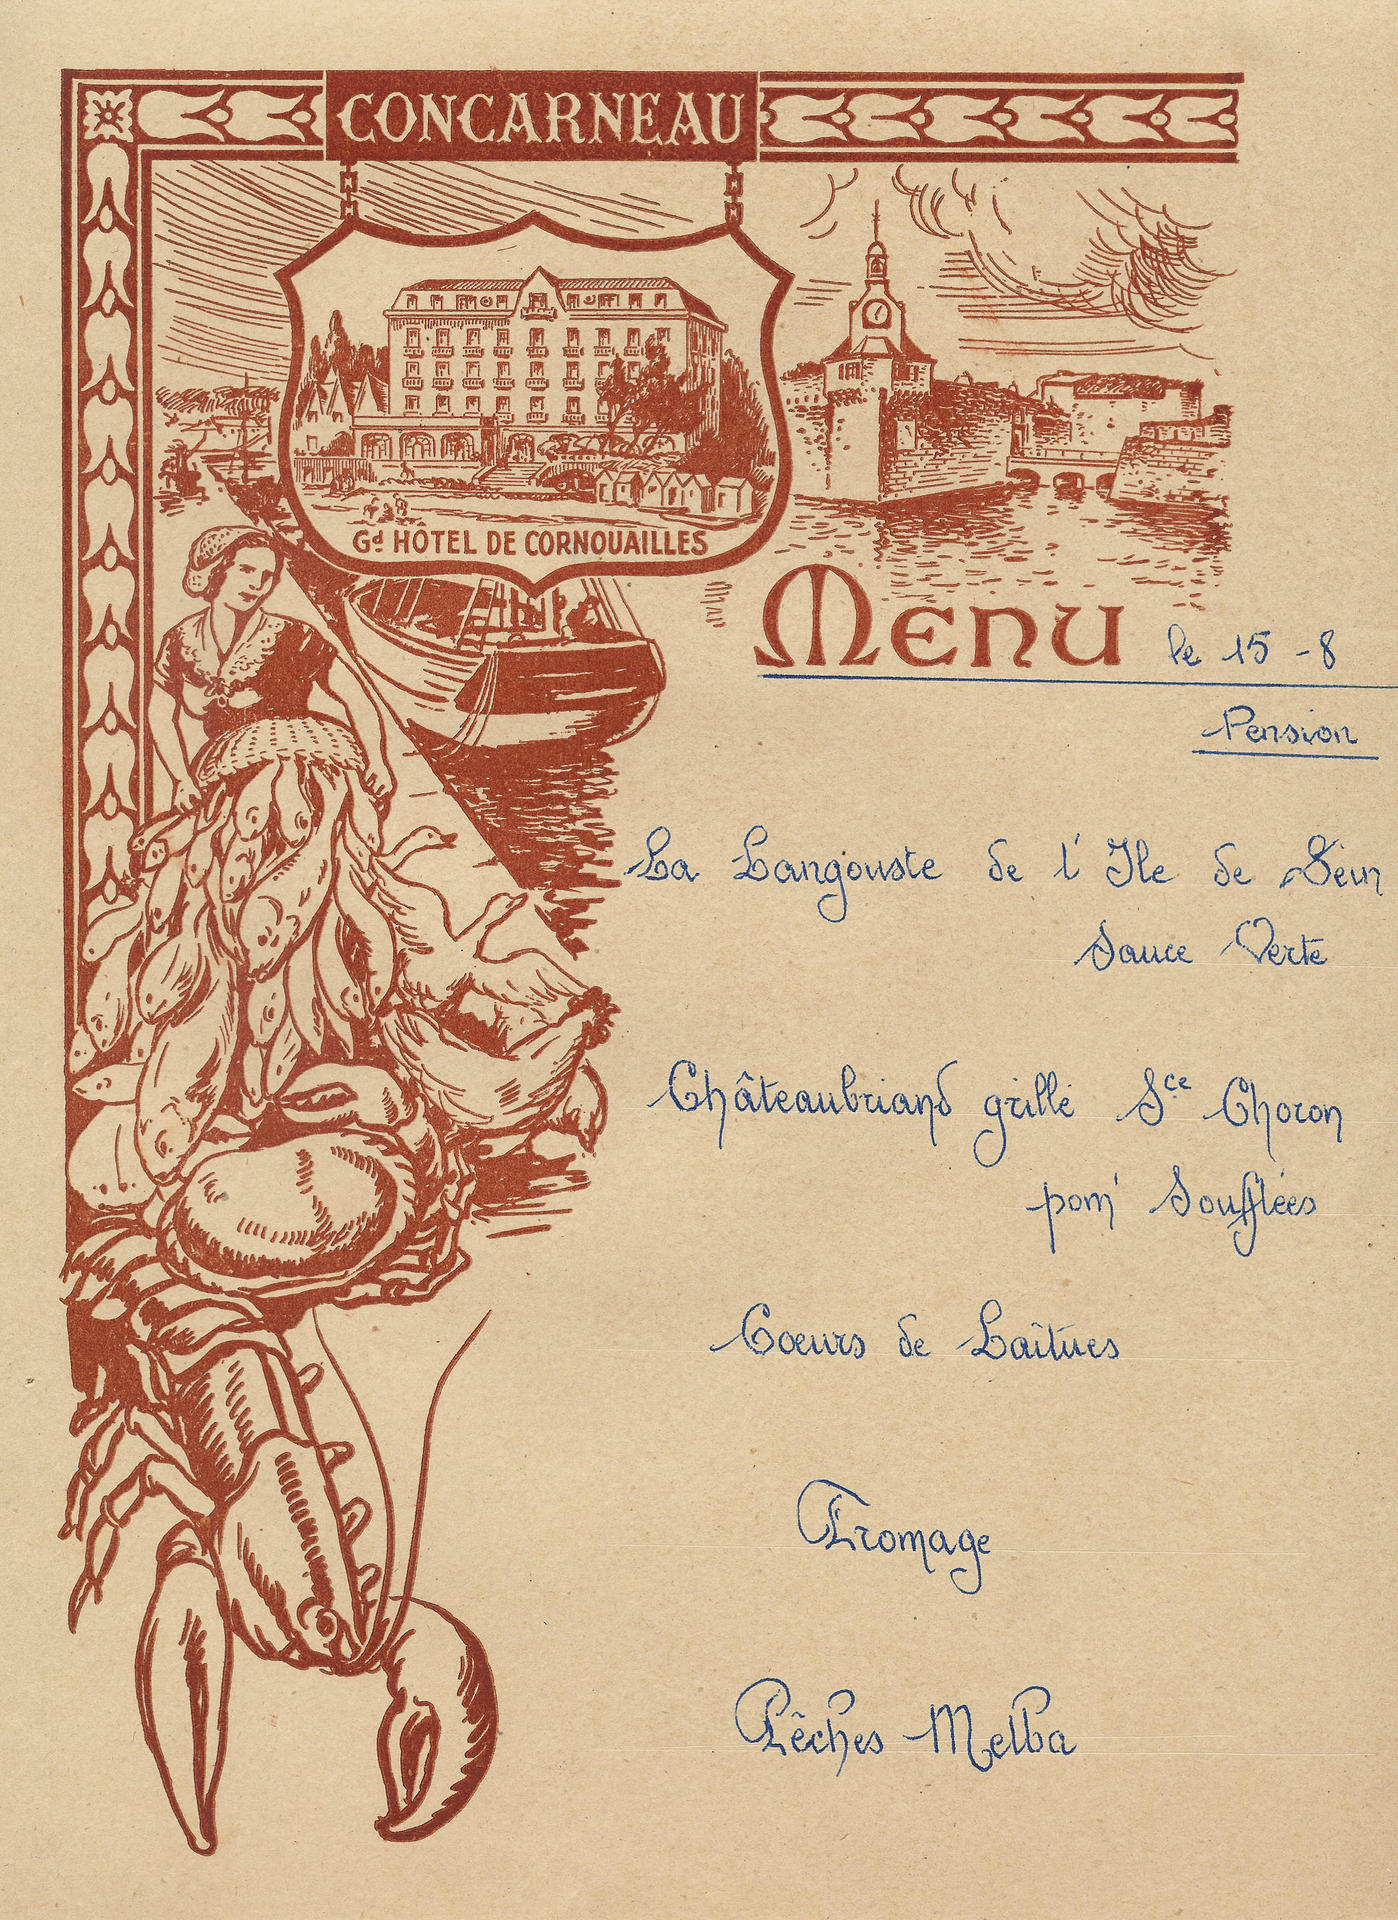 CONCARNEAU
Gd HÔTEL DE CORNOUAILLES
MENU le 15-8
Pension
La Langouste de l'Ile de Sein
Sauce Verte
Châteaubriand grillé Sce Choron
pom' Soufflées
Coeurs de Laîtues
Fromage
Pêches Melba